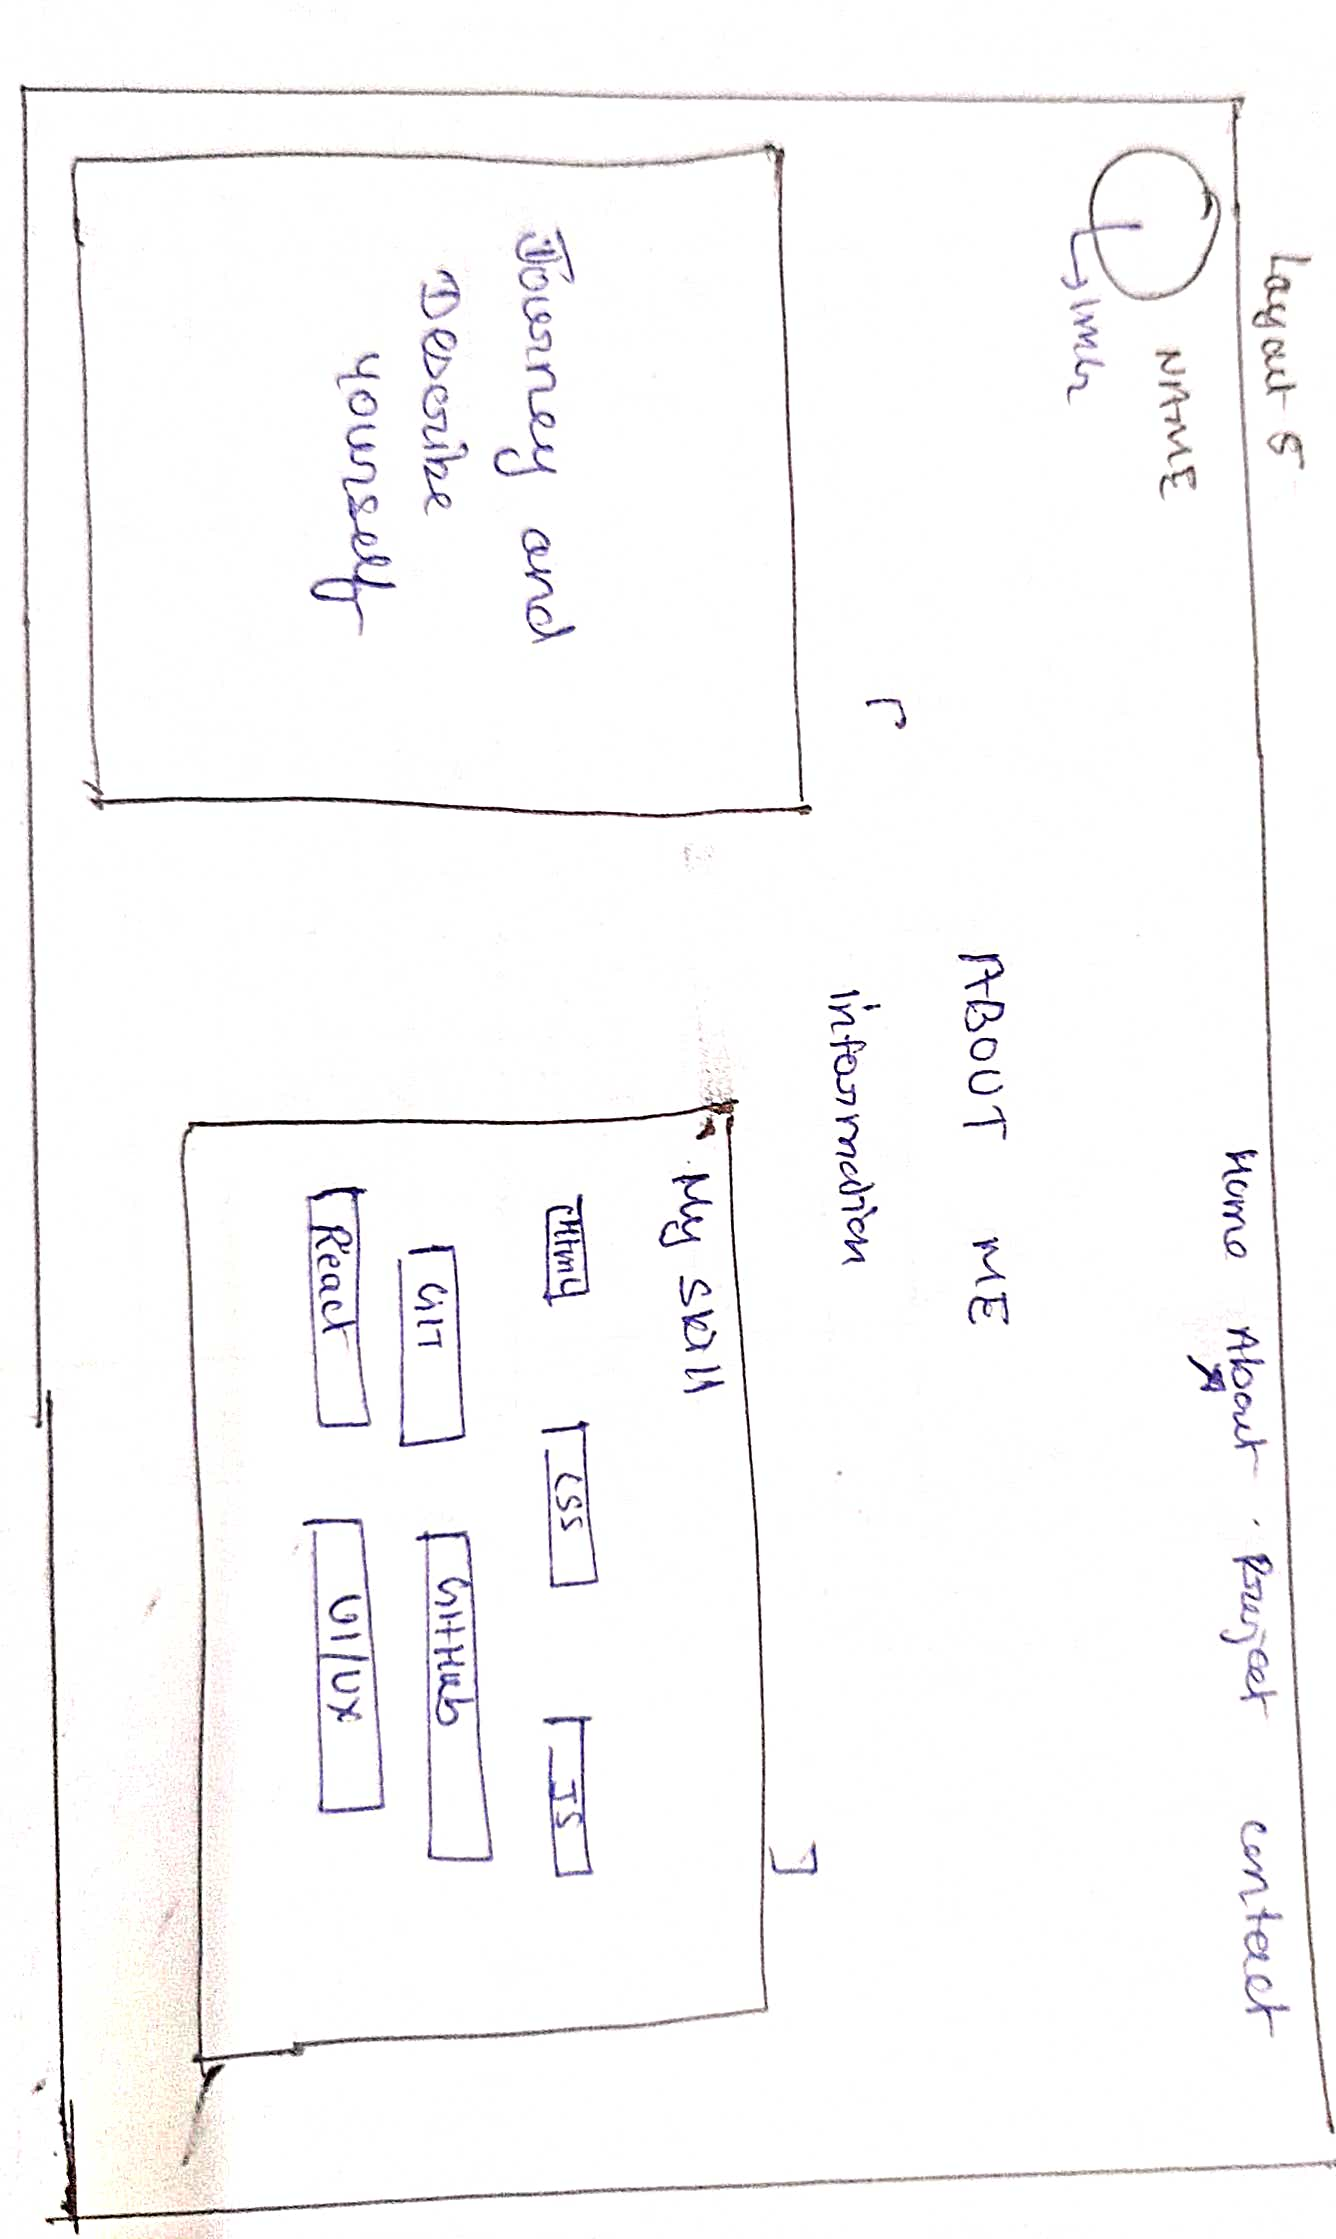 Layout 5
NAME
Home About Project Contact
IMG
ABOUT ME
information
Journey and
Describe
yourself
My Skill
Html CSS JS
GIT GitHub
React UI/UX